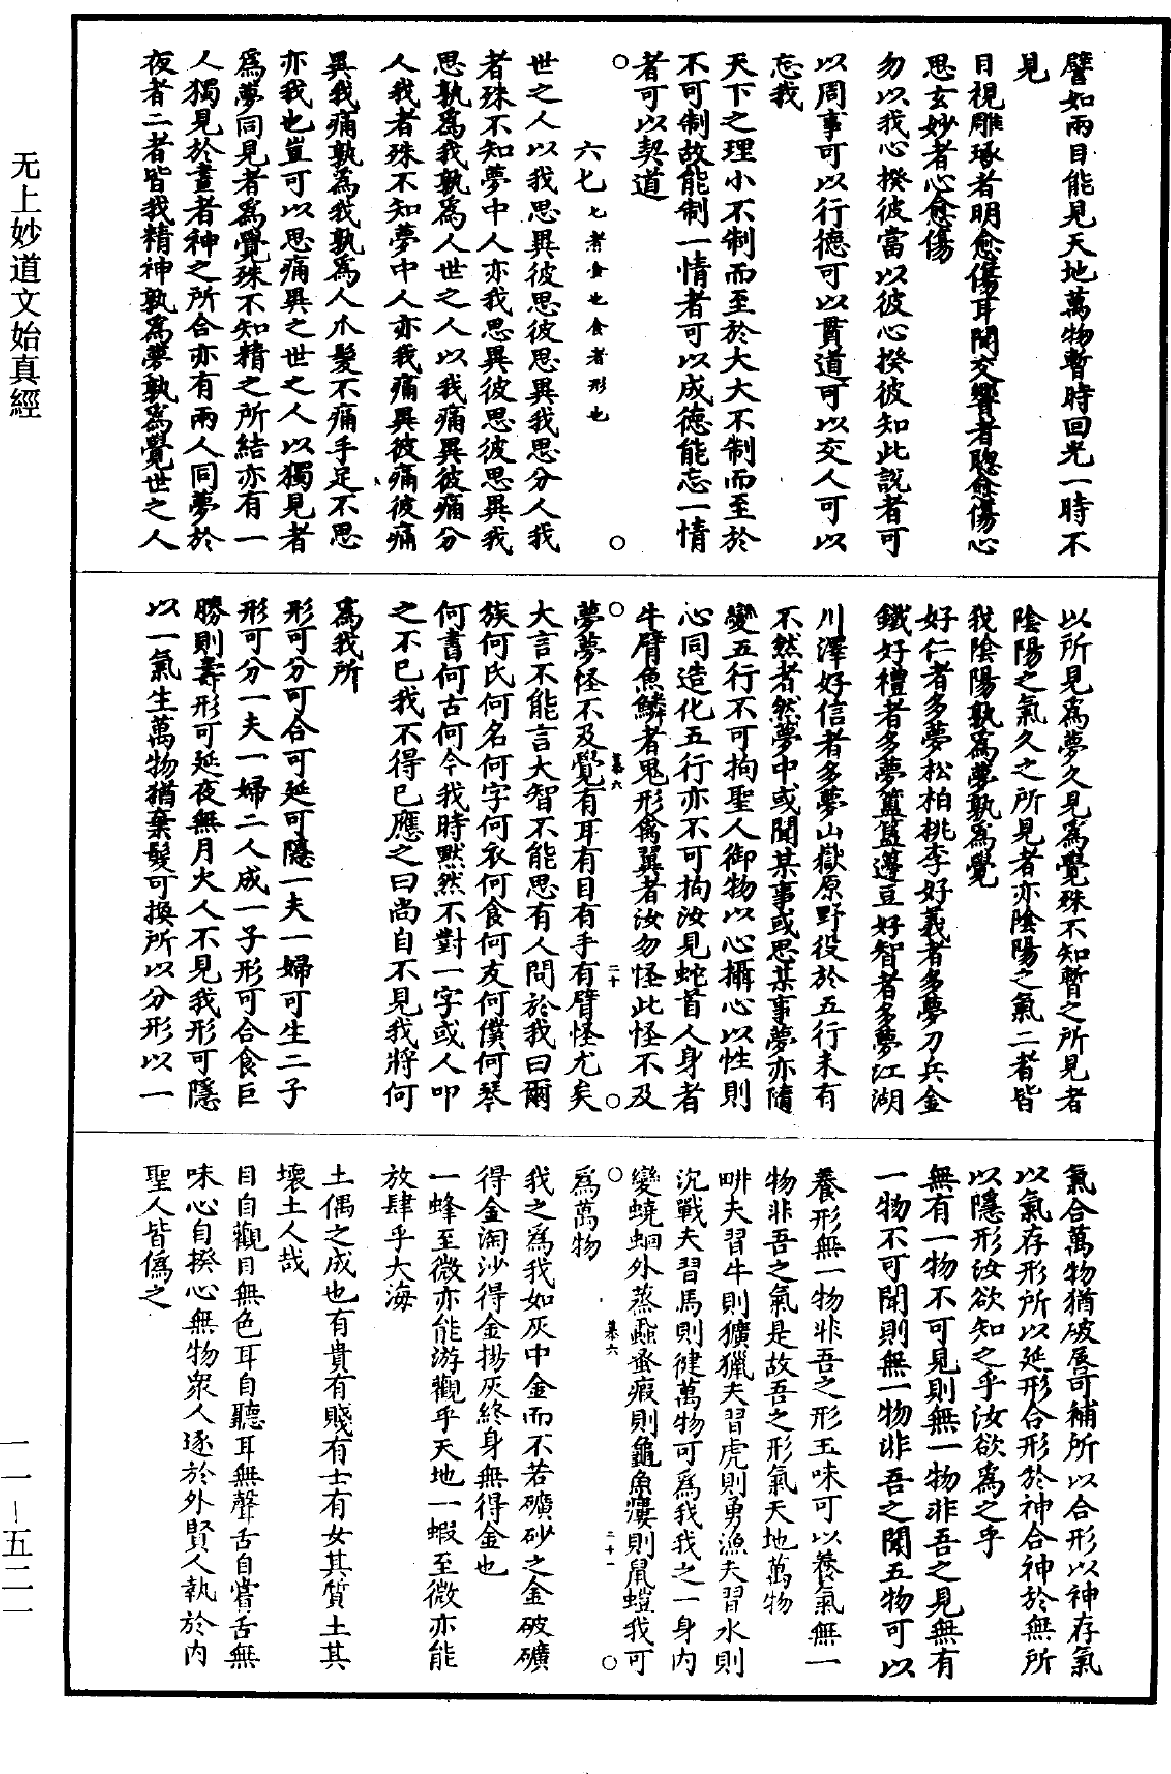 譬如兩目能見天地萬物暫時回光一時不
見
目視雕琢者明愈傷耳聞交響者聰愈傷心
思玄妙者心愈傷
勿以我心揆彼當以彼心揆彼知此說者可
以周事可以行德可以貫道可以交人可以
忘我
天下之理小不制而至於大大不制而至於
不可制故能制一情者可以成德能忘一情
者可以契道
六七七者食也食者形也
世之人以我思異彼思彼思異我思分人我
者殊不知夢中人亦我思異彼思彼思異我
思孰為我孰為人世之人以我痛異彼痛分
人我者殊不知夢中人亦我痛異彼痛彼痛
異我痛孰為我孰為人爪髮不痛手足不思
亦我也豈可以思痛異之世之人以獨見者
為夢同見者為覺殊不知精之所結亦有一
人獨見於晝者神之所合亦有兩人同夢於
夜者二者皆我精神孰為夢孰為覺世之人
以所見為夢久見為覺殊不知暫之所見者
陰陽之氣久之所見者亦陰陽之氣二者皆
我陰陽孰為夢孰為覺
好仁者多夢松柏桃李好義者多夢刀兵金
鐵好禮者多夢簠簋籩豆好智者多夢江湖
川澤好信者多夢山嶽原野役於五行未有
不然者然夢中或聞某事或思某事夢亦隨
變五行不可拘聖人御物以心攝心以性則
心同造化五行亦不可拘汝見蛇首人身者
牛臂魚鱗者鬼形禽翼者汝勿怪此怪不及
慕六
二十
夢夢怪不及覺有耳有目有手有臂怪尤矣
大言不能言大智不能思有人問於我曰爾
族何氏何名何字何衣何食何友何僕何琴
何書何古何今我時默然不對一字或人叩
之不已我不得已應之曰尚自不見我將何
為我所
形可分可合可延可隱一夫一婦可生二子
形可分一夫一婦二人成一子形可合食巨
勝則壽形可延夜無月火人不見我形可隱
以一氣生萬物猶棄髮可換所以分形以一
氣合萬物猶破唇可補所以合形以神存氣
以氣存形所以延形合形於神合神於無所
以隱形汝欲知之乎汝欲為之乎
無有一物不可見則無一物非吾之見無有
一物不可聞則無一物非吾之聞五物可以
養形無一物非吾之形五味可以養氣無一
物非吾之氣是故吾之形氣天地萬物
畊夫習牛則獷獵夫習虎則勇漁夫習水則
沉戰夫習馬則健萬物可為我我之一身內
變蟯蛔外蒸蝨蚤瘕則龜魚瘻則鼠螘我可
慕六
二十一
為萬物
我之為我如灰中金而不若礦砂之金破礦
得金淘沙得金揚灰終身無得金也
一蜂至微亦能游觀乎天地一蝦至微亦能
放肆乎大海
土偶之成也有貴有賤有士有女其質土其
壞土人哉
目自觀目無色耳自聽耳無聲舌自嘗舌無
味心自揆心無物衆人逐於外賢人執於內
聖人皆僞之
无上妙道文始真經
一一－五二一